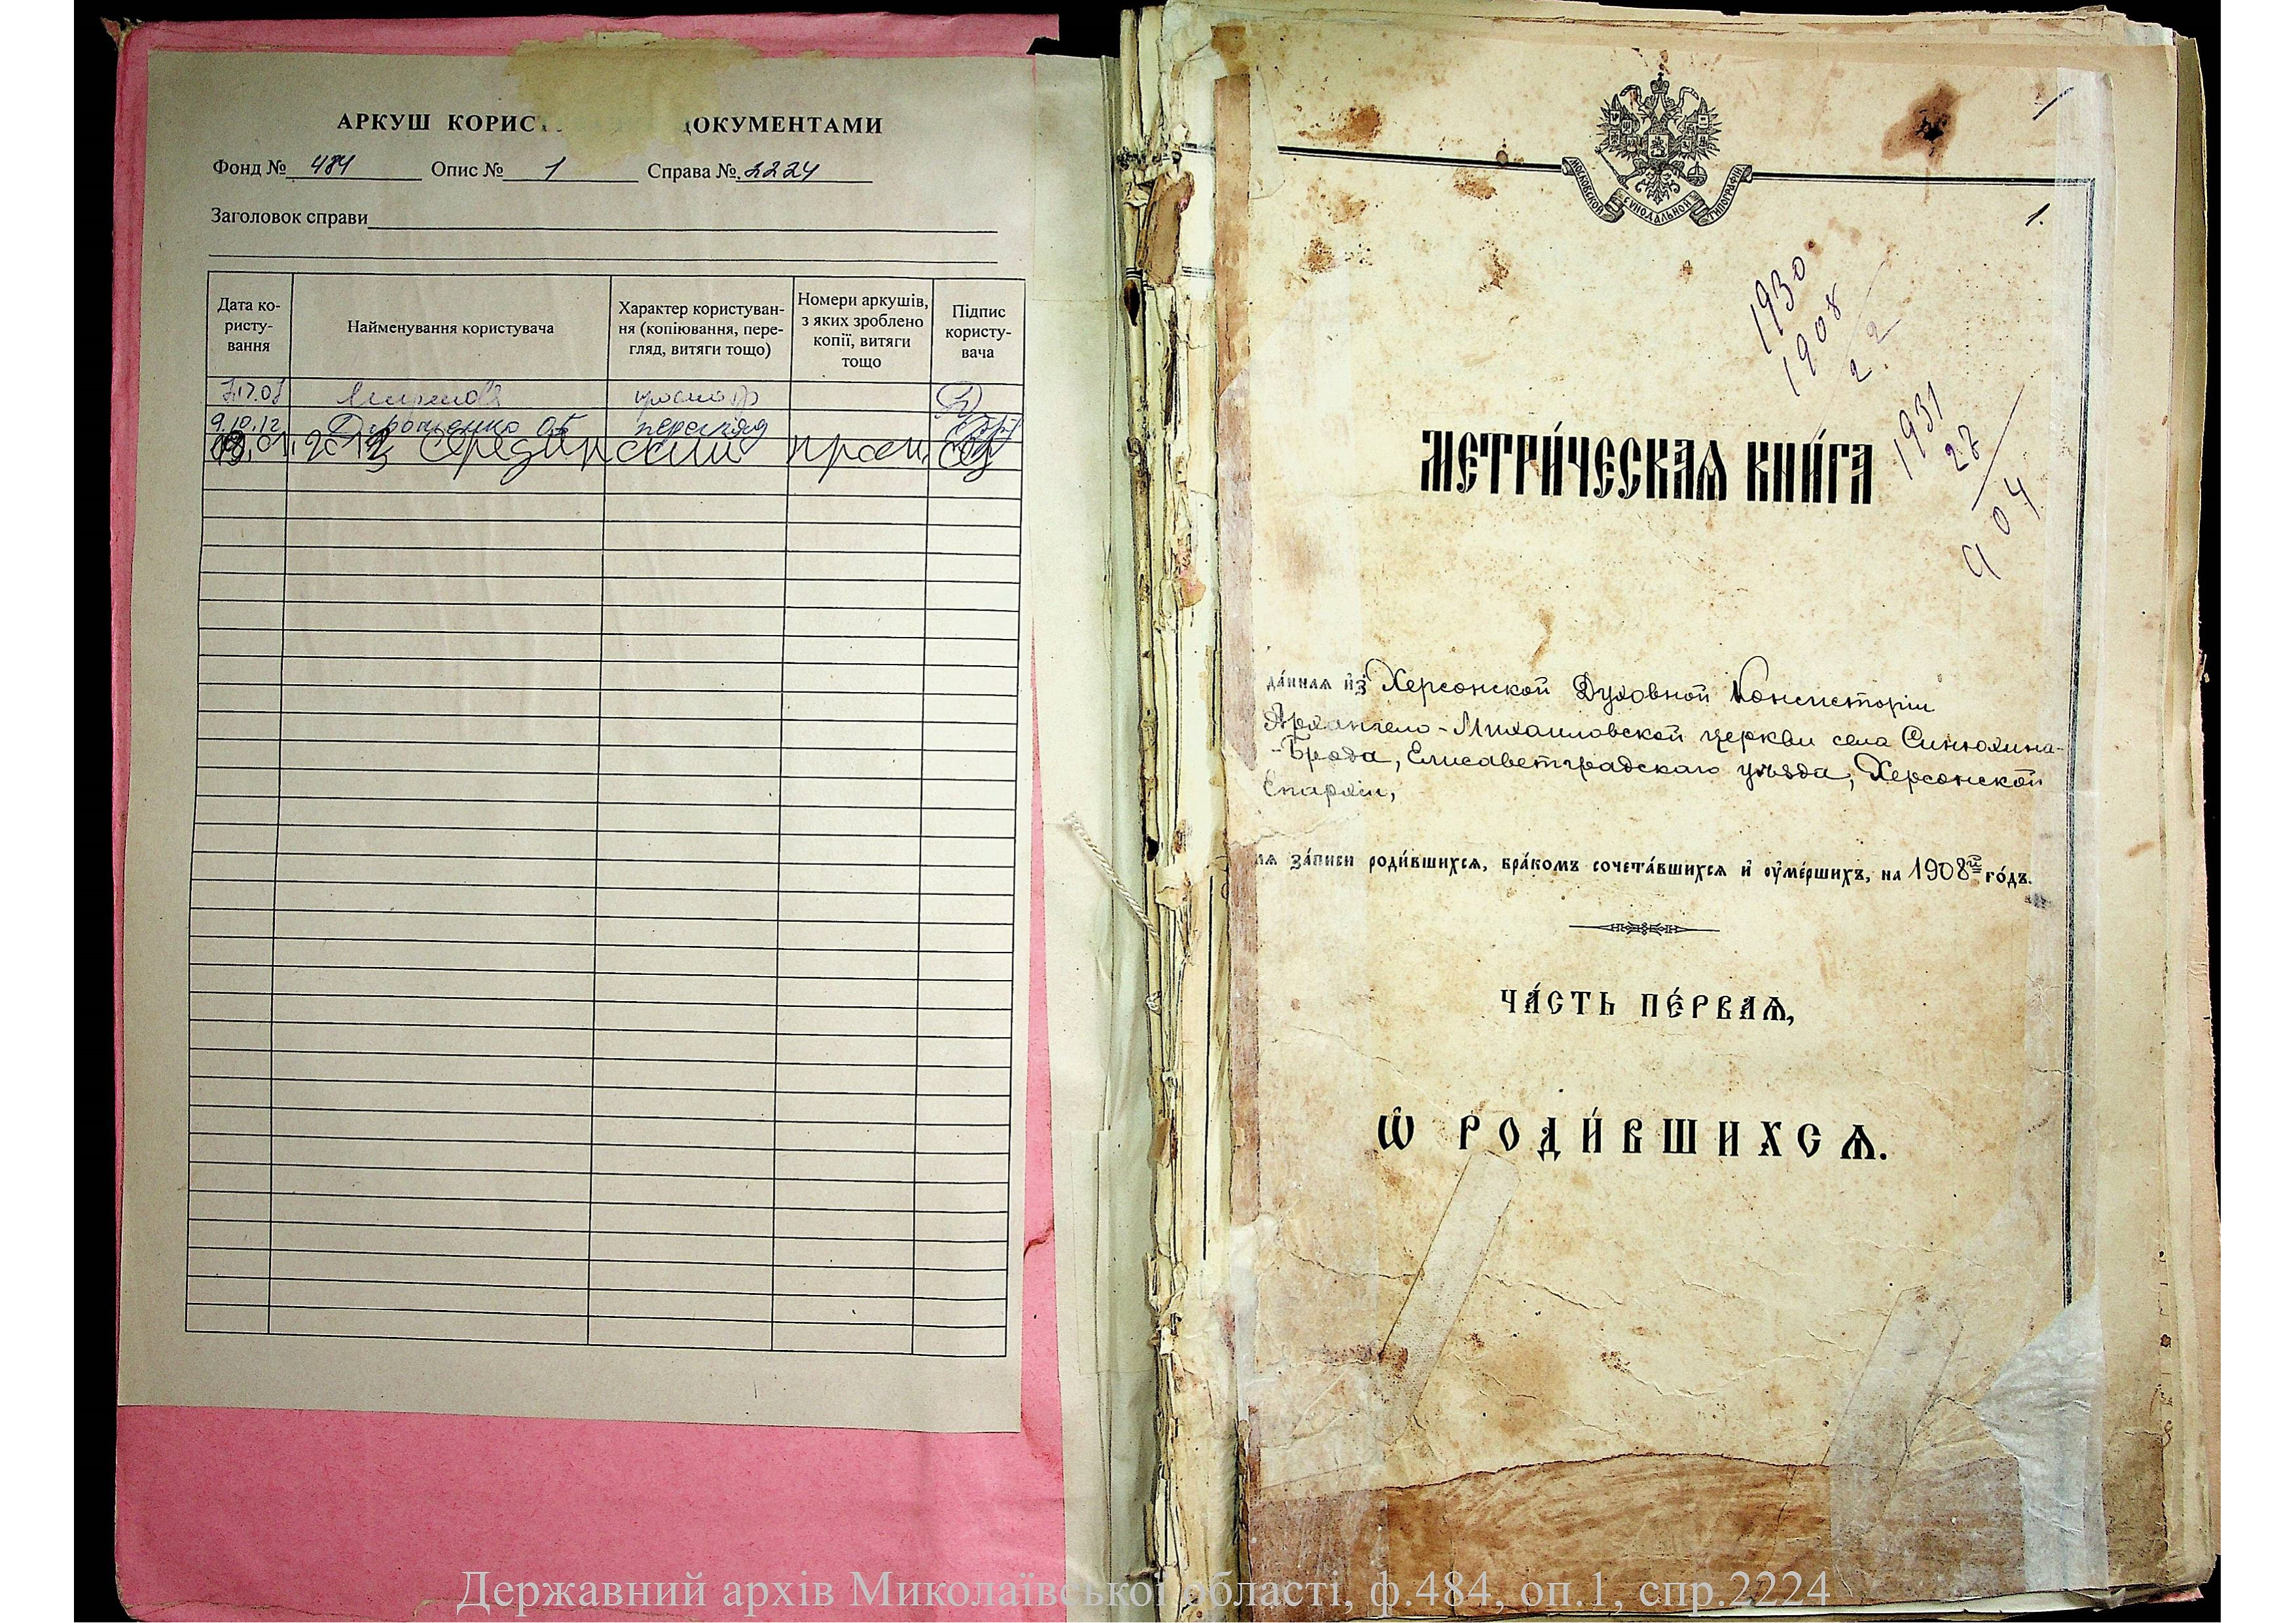 АРКУШ КОРИСТ ДОКУМЕНТАМИ
Фонд № 484 Опис № 1 Справа № 2224
Заголовок справи
Дата ко-
ристу-
вання
Найменування користувача
Характер користуван-
ня (копіювання, пере-
гляд, витяги тощо)
Номери аркушів,
з яких зроблено
копії, витяги
тощо
Підпис
користу-
вача
9.10.12 перегляд
МОСКОВСКОЙ СѴНОДАЛЬНОЙ ТИПОГРАФІИ
1
1.
1930
1908
22
1931
27
904
МЕТРИ́ЧЕСКАѦ КНИ́ГА
да́ннаѧ и҆зъ Херсонской Духовной Консисторіи
Архангело-Михаиловской церкви села Синюхина-
-Брода, Елисаветградскаго уѣзда, Херсонской
Епархіи,
ля за́писи роди́вшихсѧ, бра́комъ сочета́вшихсѧ и҆ оу҆ме́ршихъ, на 1908й го́дъ.
ЧА́СТЬ ПЕ́РВАѦ,
Ѽ РОДИ́ВШИХСѦ.
Державний архів Миколаївської області, ф.484, оп.1, спр.2224